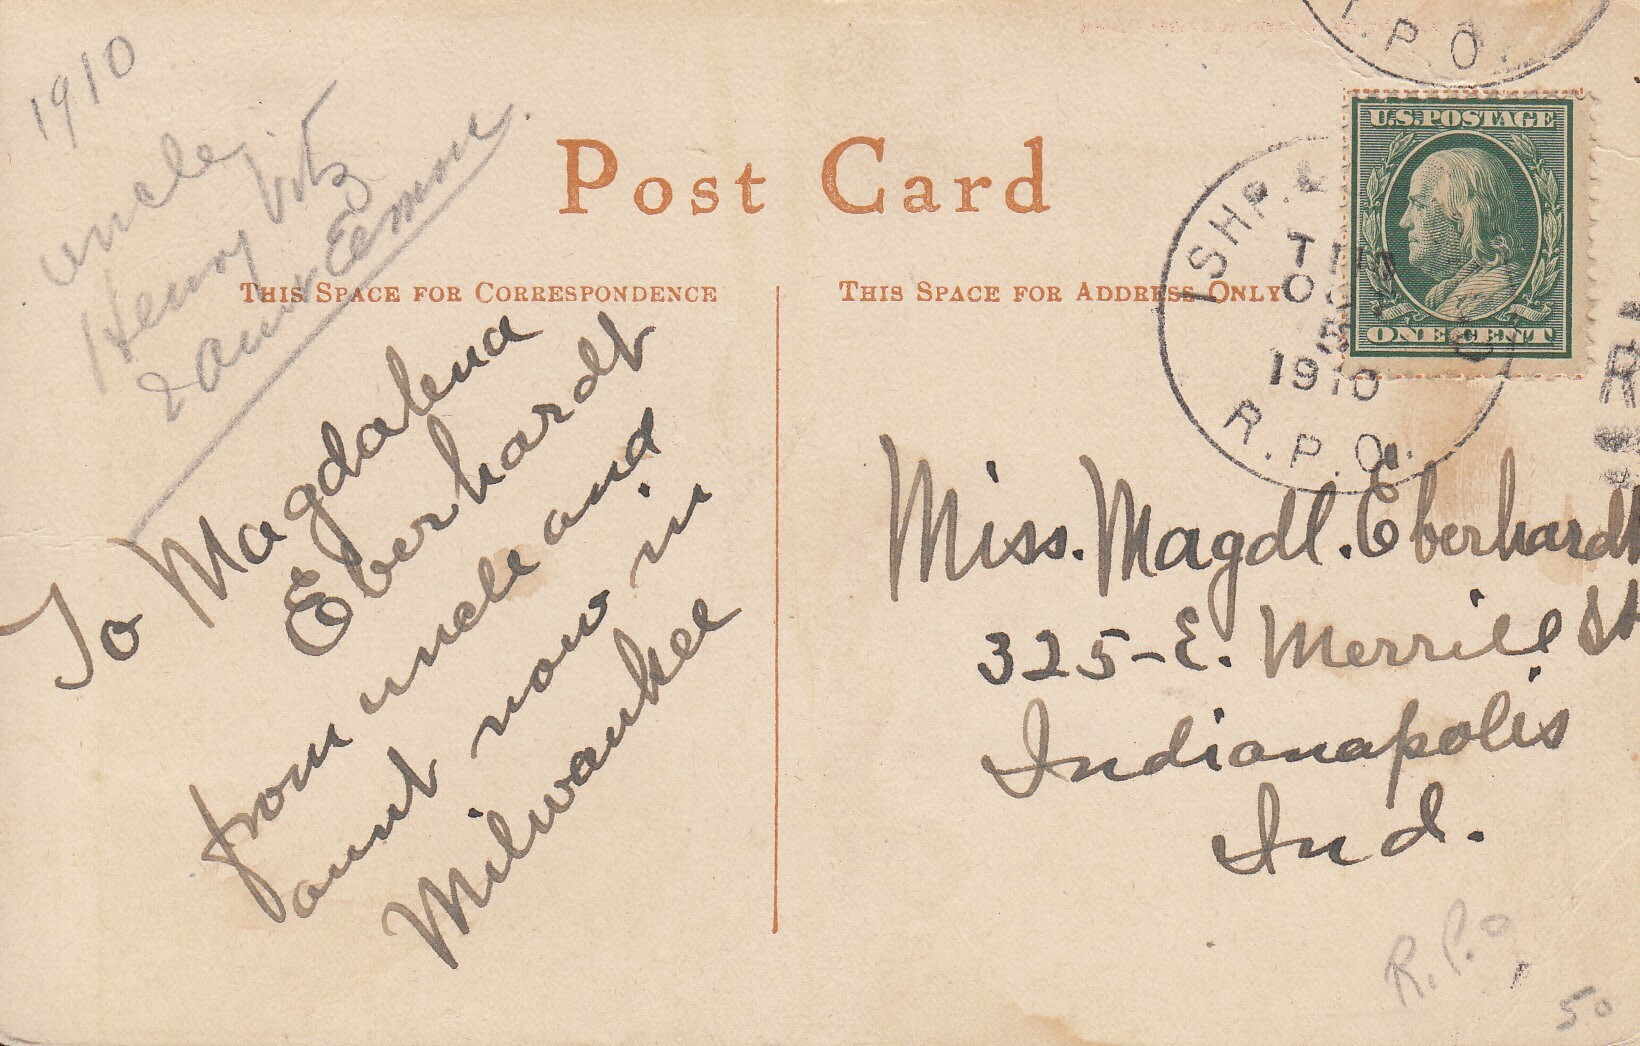 1910
uncle
Henry Vitz
& aunt Emma
Post Card
THIS SPACE FOR CORRESPONDENCE
THIS SPACE FOR ADDRESS ONLY
To Magdalena
Eberhardt
from uncle and
aunt now in
Milwaukee
U.S. POSTAGE
ONE CENT
ISHP.
5
1910
R.P.O.
.P.O.
R
Miss. Magdl. Eberhardt
325-E. Merrill St
Indianapolis
Ind.
R.P.O.
50